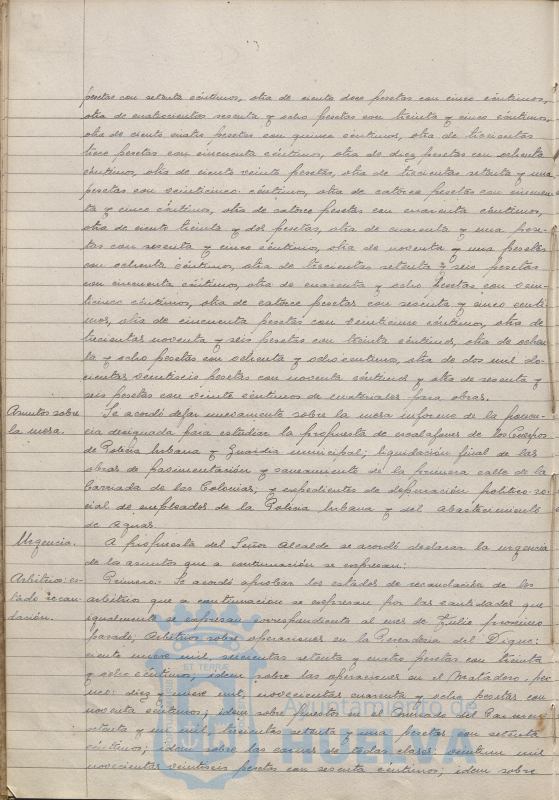 pesetas con setenta céntimos, otra de ciento doce pesetas con cinco céntimos,
otra de cuatrocientas sesenta y ocho pesetas con treinta y cinco céntimos,
otra de ciento cuatro pesetas con quince céntimos, otra de trescientas
trece pesetas con cincuenta céntimos, otra de diez pesetas con ochenta
céntimos, otra de ciento veinte pesetas, otra de trescientas setenta y una
pesetas con veinticinco céntimos, otra de catorce pesetas con cincuen-
ta y cinco céntimos, otra de catorce pesetas con cuarenta céntimos,
otra de ciento treinta y dos pesetas, otra de cuarenta y una pese-
tas con sesenta y cinco céntimos, otra de noventa y una pesetas
con ochenta céntimos, otra de trescientas setenta y seis pesetas
con cincuenta céntimos, otra de cuarenta y ocho pesetas con vein-
ticinco céntimos, otra de catorce pesetas con sesenta y cinco cénti-
mos, otra de cincuenta pesetas con veinticinco céntimos, otra de
trescientas noventa y seis pesetas con treinta céntimos, otra de ochen-
ta y ocho pesetas con ochenta y ocho céntimos, otra de dos mil do-
cientas veintiseis pesetas con noventa céntimos y otra de sesenta y
seis pesetas con veinte céntimos de materiales para obras.
Asuntos sobre la mesa.
Se acordó dejar nuevamente sobre la mesa informe de la ponen-
cia designada para estudiar la propuesta de escalafones de los Cuerpos
de Policía Urbana y Guardia municipal; liquidación final de las
obras de pavimentación y saneamiento de la primera calle de la
barriada de las Colonias; y expedientes de depuración político-so-
cial de empleados de la Policía Urbana y del Abastecimiento
de Aguas.
Urgencia.
A propuesta del Señor Alcalde se acordó declarar la urgencia
de los asuntos que a continuación se expresan:
Arbitrios: estado recaudación.
Primero. Se acordó aprobar los estados de recaudación de los
arbitrios que a continuación se expresan por las cantidades que
igualmente se expresan correspondiente al mes de Julio próximo
pasado, Arbitrios sobre operaciones en la Pescadería del Dique:
ciento nueve mil, setecientas setenta y cuatro pesetas con treinta
y ocho céntimos; idem sobre las operaciones en el Matadero
diez y nueve mil, novecientas cuarenta y ocho pesetas con
noventa céntimos; idem sobre Puestos en el Mercado del Carmen
setenta y un mil, trescientas setenta y una pesetas con setenta
céntimos; idem sobre las carnes de todas clases: veintiun mil
novecientas veintiseis pesetas con sesenta céntimos; idem sobre
Ayuntamiento de
HUELVA